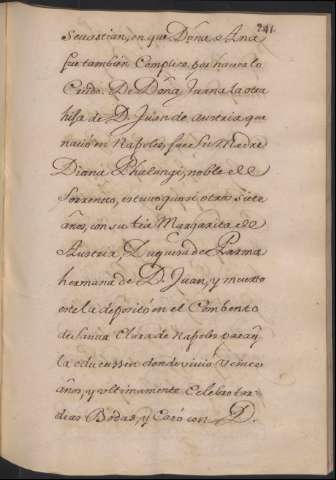 241.
Sevastian, en que Dᵃña Ana
fue tambien Complice, por haverlo
Creido. De Doña Juana la otra
hija de D. Juan de Austria que
nació en Napoles, fue su Madre
Diana Phalangi, noble de
Sorrento, estuvo quasi otros siete
años, con su tia Margarita de
Austria, Duquesa de Parma
hermana de D. Juan, y muerto
este la depositó en el Combento
de Santa Clara de Napoles para
la educassion donde vivió veinte
años, y ultimamente Celebró
Bodas, y Casó con D.